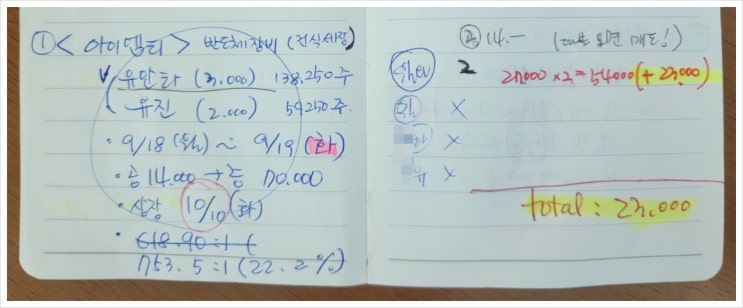 ① < 아이엠티 > 반도체장비 (건식세정)
유안타 (3,000) 138,250주
유진 (2,000) 59,250주.
· 9/18 (월) ~ 9/19 (화)
· 공 14,000 → 등 170,000
· 상장 10/10 (화)
· 618.90:1 (
753.5:1 (22.2%)
공 14.- ( 보면 매도!)
2 27,000 x 2 = 54000 (+ 23,000)
X
X
X
total : 23,000